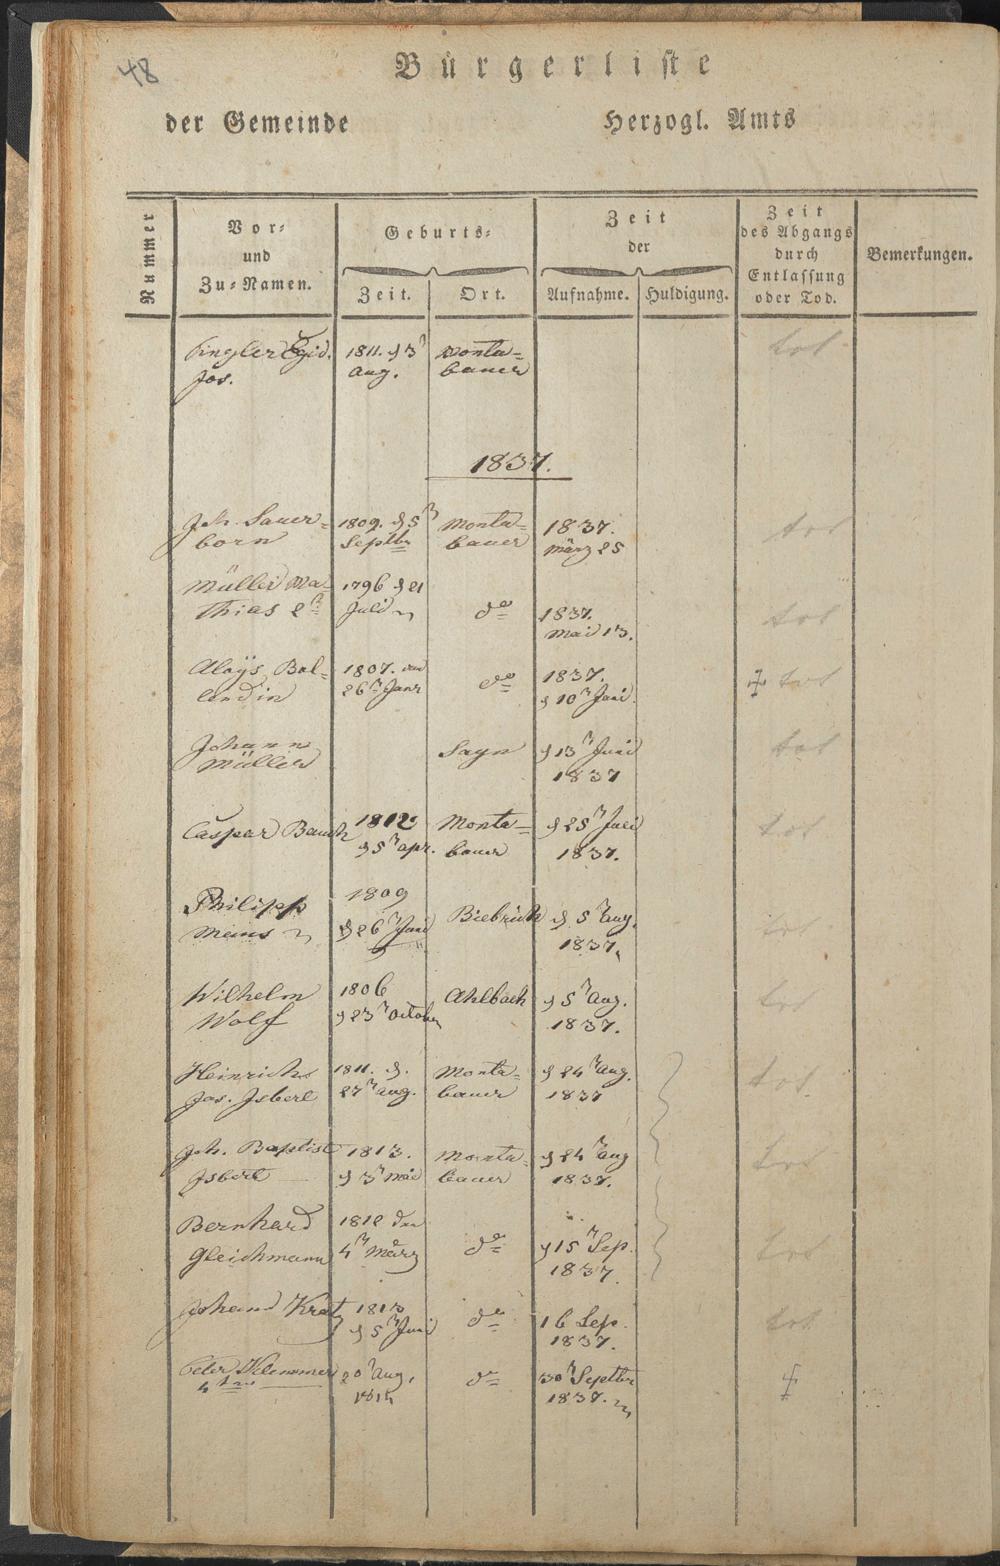 48
Bürgerliste
der Gemeinde Herzogl. Amts
Nummer
Vor-
und
Zu-Namen.
Geburts-
Zeit.
Ort.
Zeit
der
Aufnahme.
Huldigung.
Zeit
des Abgangs
durch
Entlassung
oder Tod.
Bemerkungen.
Egid. 1811. d 3t Monta= tot
Jos. Aug. bauer
1837.
Joh. Sauer= 1809. d 5t Monta= 1837. tot
born Septbr bauer März 25
Müller Ma= 1796 d 21
thias 2t Juli do 1837. tot
Mai 13.
Aloÿs Bal= 1807. den do 1837. ‡ tot
lendin 26t Janr d 10t Juni.
Johann Sayn d 13t Juni tot
Müller 1837
Caspar Bauch 1812 Monta= d 25t Juli tot
d 5t apr. bauer 1837.
Philipp 1809 Biebrich d 5t Aug. tot
Meus d 26t Juni 1837.
Wilhelm 1806 Ahlbach d 5t Aug. tot
Wolf d 23t October 1837.
Heinrich 1811. d. Monta= d 24t Aug. tot
Jos. Isbert 27t Aug. bauer 1837
Joh. Baptist 1813. Monta= d 24t Aug tot
Isbert d 3t Mai bauer 1837.
Bernhard 1812 den
Gleichmann 4t März do d 15t Sep. tot
1837.
Johann Krätz 1813 do 16 Sep. tot
d 5t Juni 1837.
Peter Klemmer 20t Aug. do 30t Septbr †
4ter 1814 1837.